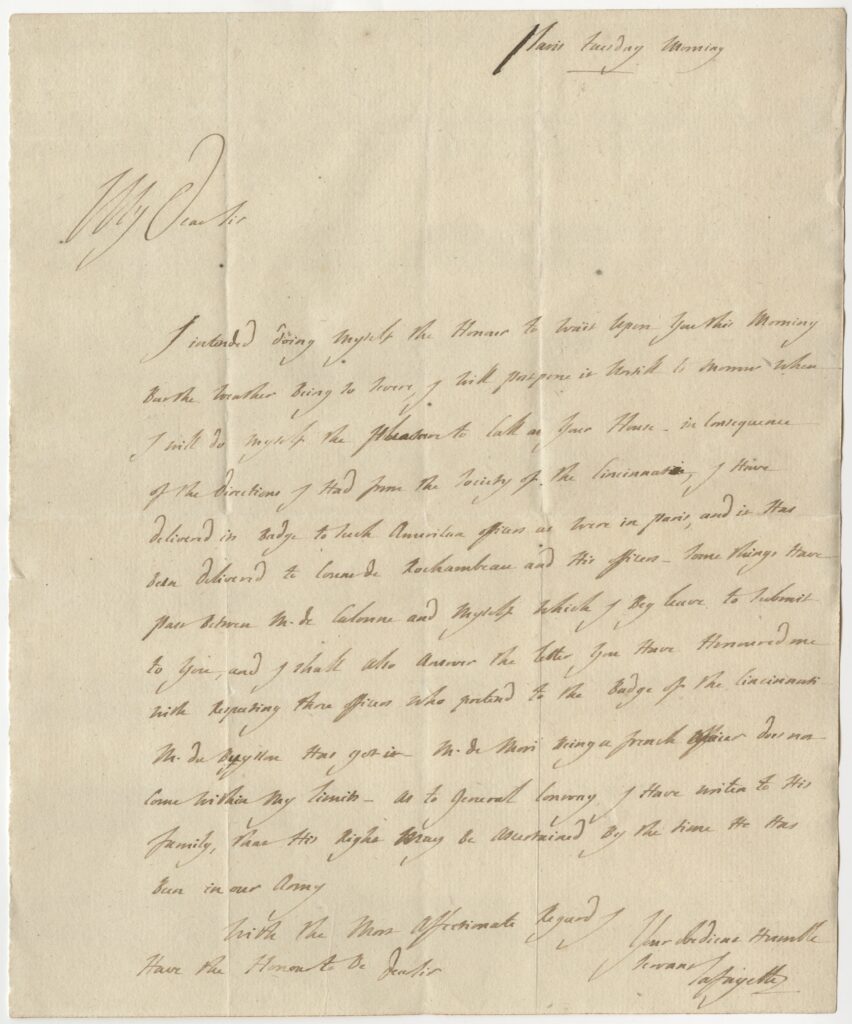 Paris tuesday Morning
My Dear Sir
I intended doing Myself the Honour to wait Upon You this Morning
But the weather Being so severe, I will postpone it Untill to morrow when
I will do Myself the pleasure to Call at Your House - in Consequence
of the Directions I Had from the Society of the Cincinnati, I Have
delivered its Badge to such American officers as were in paris, and it Has
Been delivered to Count de Rochambeau and His officers - some things Have
past Between M. de Calonne and Myself which I Beg leave to submit
to You, and I shall also Answer the letter You Have Honoured me
with Respecting those officers who pretend to the Badge of the Cincinnati
M. du Has got it M. de Being a french officer does not
Come within My limits - as to General Conway I Have writen to His
family, that His Right May Be Ascertained By the time He Has
Been in our Army
With the Most Affectionate Regard I
Have the Honour to Be Dear Sir
Your obedient Humble
servant
Lafayette